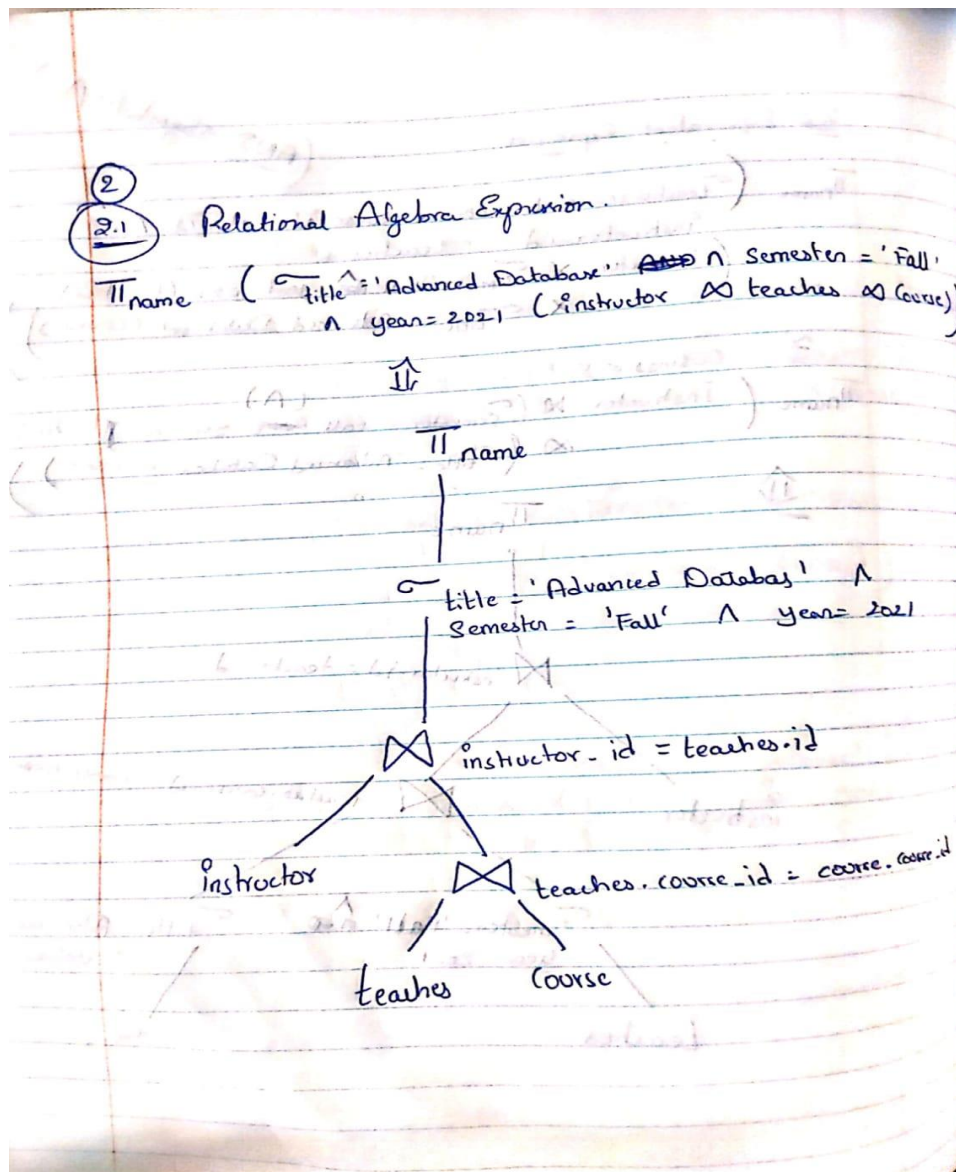 2
2.1 Relational Algebra Expression.
π name ( σ title = 'Advanced Database' ∧ Semester = 'Fall'
∧ year = 2021 (instructor ⋈ teaches ⋈ Course)
⇓
π name
σ title = 'Advanced Databas' ∧
Semester = 'Fall' ∧ year = 2021
⋈ instructor_id = teaches.id
instructor ⋈ teaches.course_id = course.course.id
teaches Course